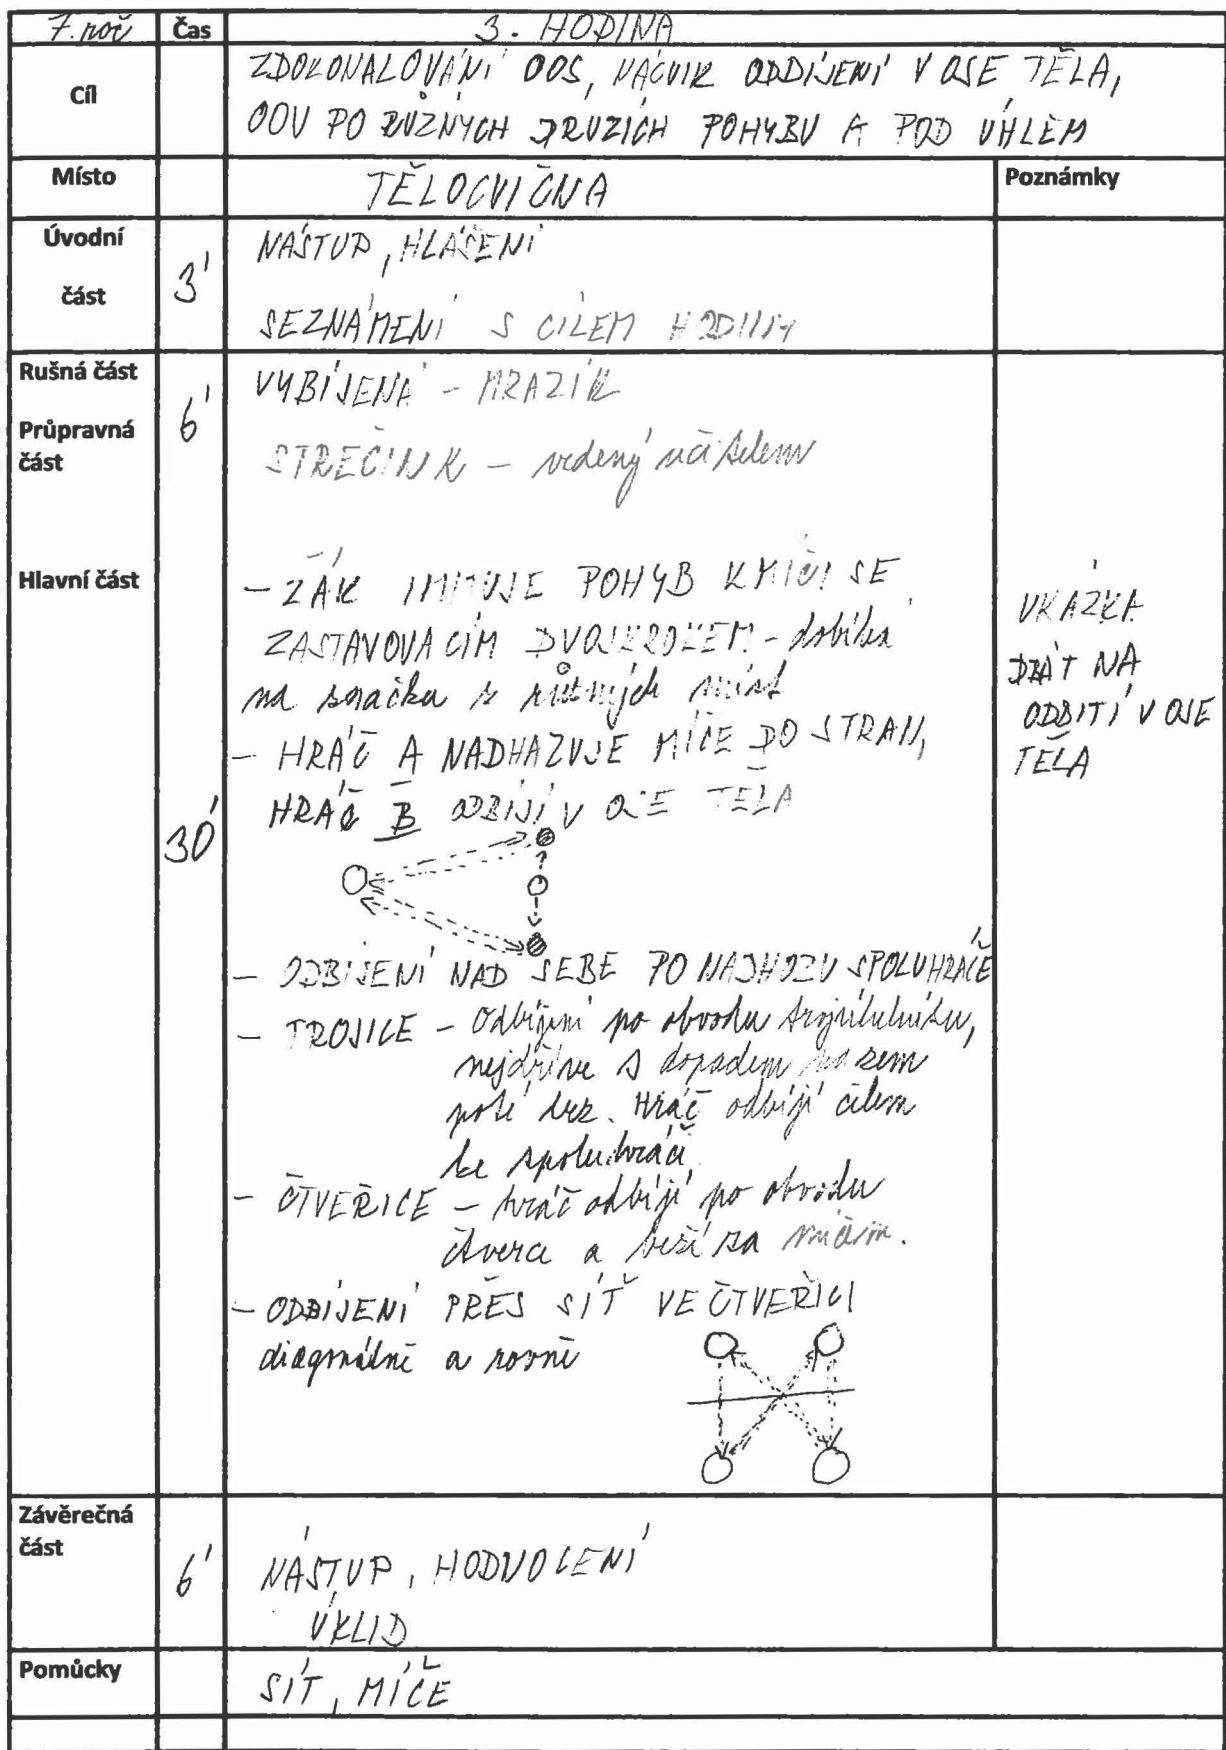 7. roč Čas 3. HODINA
Cíl
ZDOKONALOVÁNÍ OOS, NÁCVIK ODBÍJENÍ V OSE TĚLA,
OOV PO RŮZNÝCH DRUZÍCH POHYBU A POD ÚHLEM
Místo TĚLOCVIČNA Poznámky
Úvodní
část
3'
NÁSTUP, HLÁŠENÍ
SEZNÁMENÍ S CÍLEM HODINY
Rušná část
Průpravná
část
6'
VYBÍJENÁ - MRAZÍK
STREČINK - vedený učitelem
Hlavní část
30'
- ŽÁK IMITUJE POHYB K MÍČI SE
ZASTAVOVACÍM DVOJKROKEM -
na z různých míst
- HRÁČ A NADHAZUJE MÍČE DO STRAN,
HRÁČ B ODBÍJÍ V OSE TĚLA
- ODBÍJENÍ NAD SEBE PO NADHOZU SPOLUHRÁČE
- TROJICE - Odbíjení po obvodu trojúhelníku,
nejdříve s dopadem na zem
poté bez. Hráč odbíjí čelem
ke spoluhráči
- ČTVEŘICE - hráč odbíjí po obvodu
čtverce a běží za míčem.
- ODBÍJENÍ PŘES SÍŤ VE ČTVEŘICI
diagonálně a rovně
UKÁZKA
DBÁT NA
ODBITÍ V OSE
TĚLA
Závěrečná
část
6'
NÁSTUP, HODNOCENÍ
ÚKLID
Pomůcky SÍŤ, MÍČE